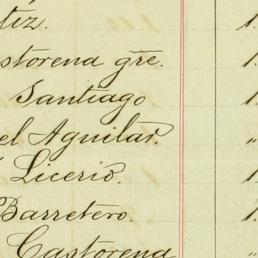 tiz. 1.
storena gre. 1.
Santiago 1.
el Aguilar. "
Licerio. 1.
Barretero. 1.
Castorena "